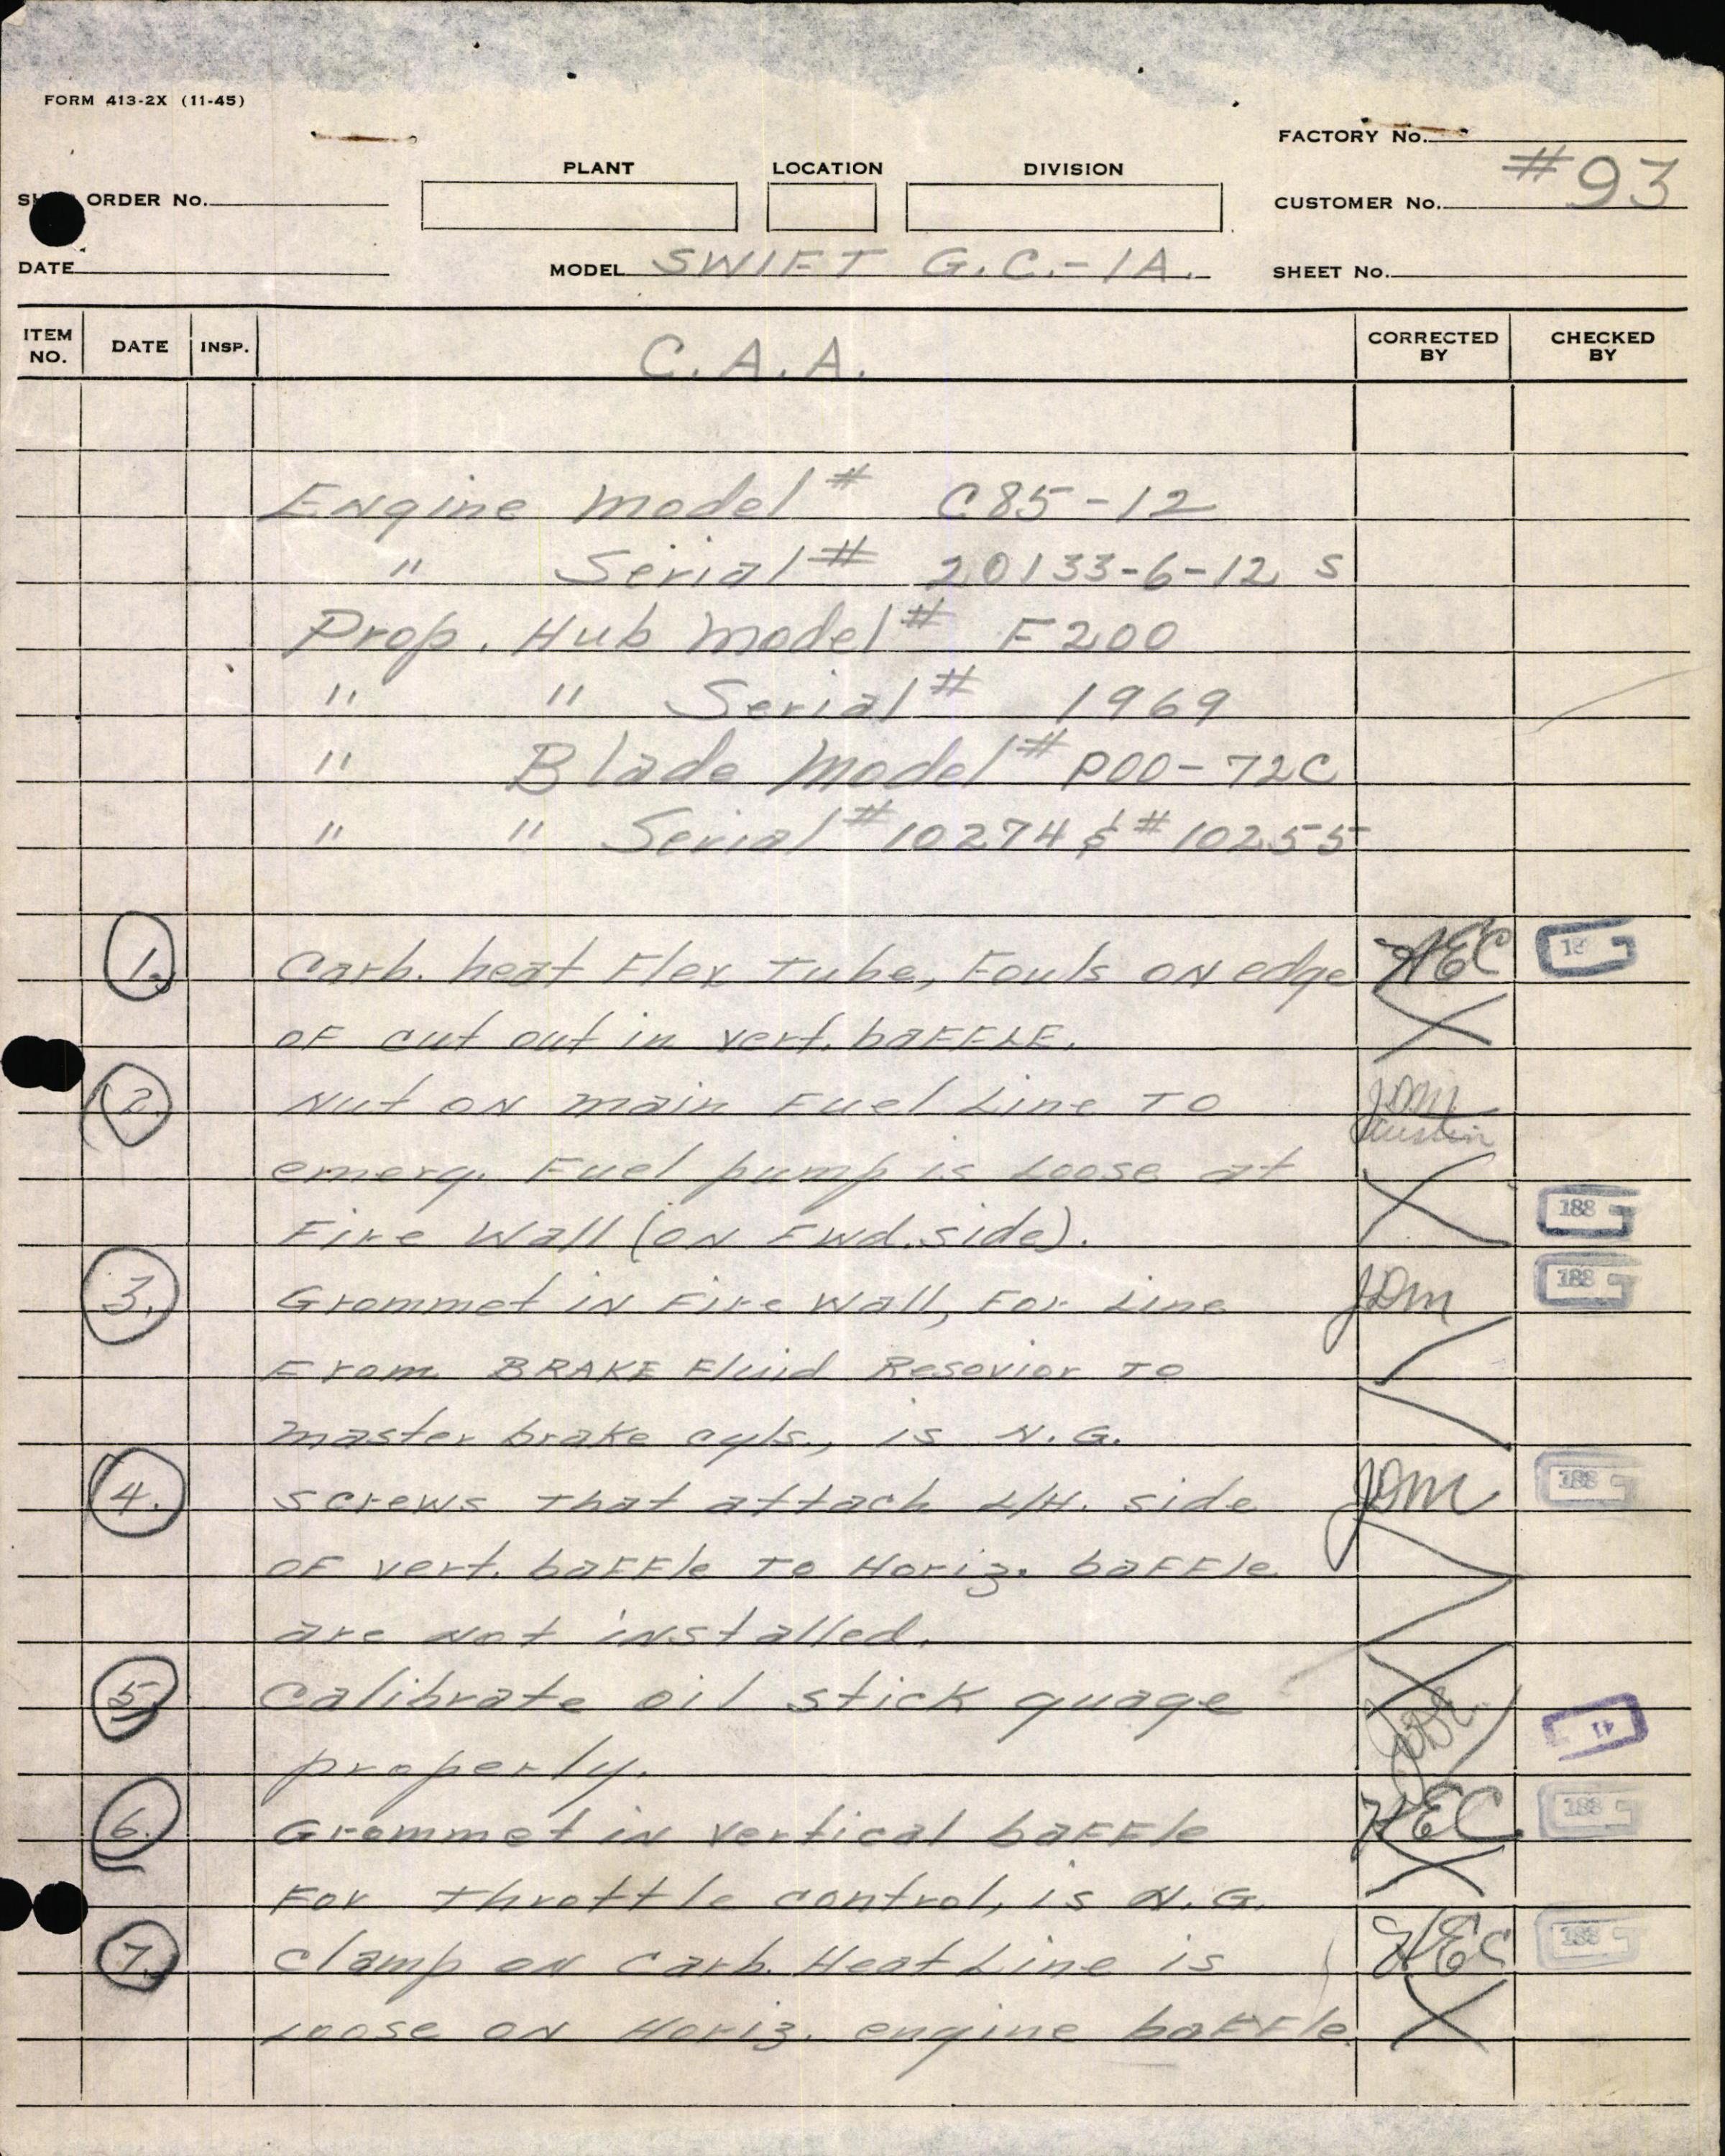 FORM 413-2X (11-45)
FACTORY No.
PLANT LOCATION DIVISION
#93
ORDER No. CUSTOMER No.
DATE MODEL SWIFT G.C.-1A. SHEET No.
ITEM NO. DATE INSP. C.A.A. CORRECTED BY CHECKED BY
Engine Model # C85-12
" Serial # 20133-6-12 S
Prop. Hub Model # F200
" " Serial # 1969
" Blade Model # P00-72C
" " Serial # 10274 & # 10255
1. Carb. heat Flex Tube, Fouls on edge HEC
of cut out in vert. baFFLE.
2. Nut on main Fuel Line To JDM
emerg. Fuel pump is Loose at Austin
Fire Wall (on Fwd. side). 188
3. Grommet in Fire Wall, For Line JDM 188
From BRAKE Fluid Resovior To
master brake cyls., is N.G.
4. screws That attach L/H. side JDM 188
of vert. baffle To Horiz. baffle
are not installed.
5. Calibrate oil stick quage 41
properly.
6. Grommet in vertical baffle HEC 188
For Throttle control, is N.G.
7. Clamp on Carb. Heat Line is HEC 188
Loose on Horiz. engine baffle.